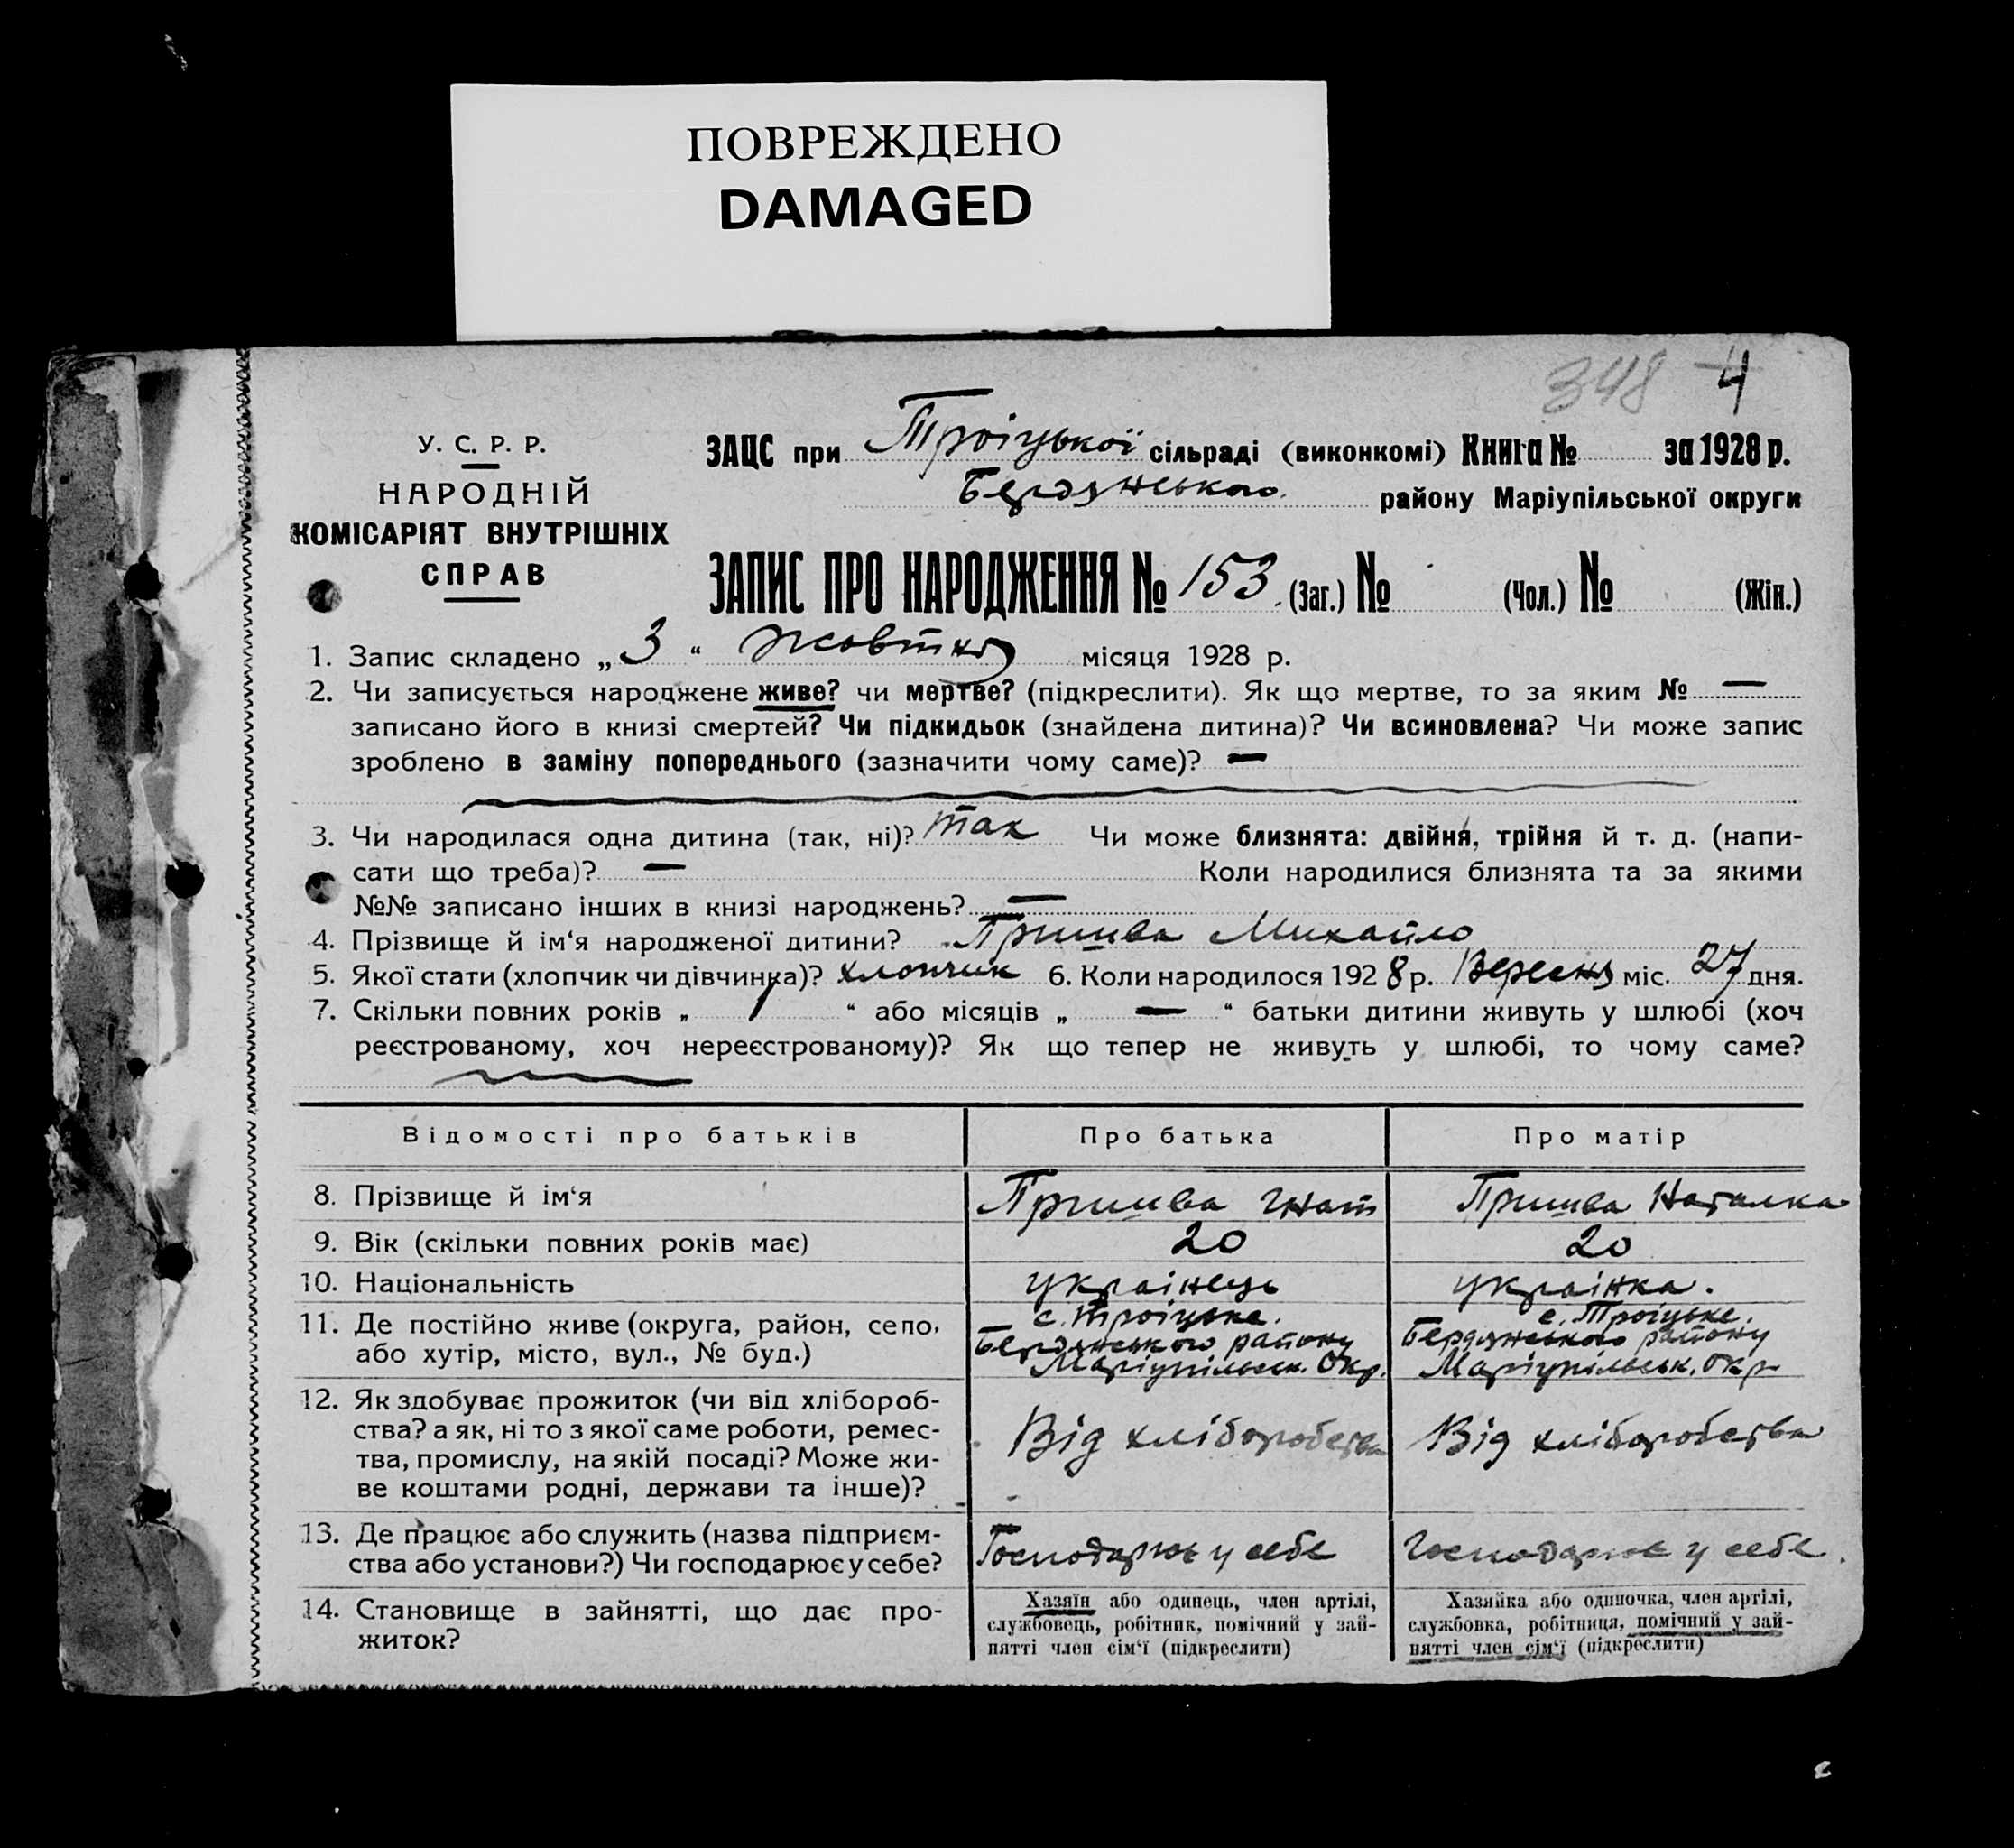 ПОВРЕЖДЕНО
DAMAGED
348 4
У. С. Р. Р.
НАРОДНІЙ
КОМІСАРІЯТ ВНУТРІШНІХ
СПРАВ
ЗАЦС при Троіцької сільраді (виконкомі) Книга № за 1928 р.
Бердянського району Маріупільської округи
ЗАПИС ПРО НАРОДЖЕННЯ № 153 (Заг.) № (Чол.) № (Жін.)
1. Запис складено „ 3 “ Жовтня місяця 1928 р.
2. Чи записується народжене живе? чи мертве? (підкреслити). Як що мертве, то за яким № —
записано його в книзі смертей? Чи підкидьок (знайдена дитина)? Чи всиновлена? Чи може запис
зроблено в заміну попереднього (зазначити чому саме)? —
3. Чи народилася одна дитина (так, ні)? так Чи може близнята: двійня, трійня й т. д. (напи-
сати що треба)? — Коли народилися близнята та за якими
№№ записано інших в книзі народжень? —
4. Прізвище й ім‘я народженої дитини? Пришва Михайло
5. Якої стати (хлопчик чи дівчинка)? хлопчик 6. Коли народилося 1928 р. Вересня міс. 27 дня.
7. Скільки повних років „ 1 “ або місяців „ — “ батьки дитини живуть у шлюбі (хоч
реєстрованому, хоч нереєстрованому)? Як що тепер не живуть у шлюбі, то чому саме?
Відомості про батьків Про батька Про матір
8. Прізвище й ім‘я Пришва Гнат Пришва Наталка
9. Вік (скільки повних років має) 20 20
10. Національність украінець украінка.
11. Де постійно живе (округа, район, село, с. Троіцьке. с. Троіцьке.
або хутір, місто, вул., № буд.) Бердянського району Бердянського району
Маріупільськ. Окр. Маріупільськ. Окр.
12. Як здобуває прожиток (чи від хлібороб-
ства? а як, ні то з якої саме роботи, ремес- Від хліборобства Від хліборобства
тва, промислу, на якій посаді? Може жи-
ве коштами родні, держави та інше)?
13. Де працює або служить (назва підприєм- Господарює у себе Господарює у себе.
ства або установи?) Чи господарює у себе?
14. Становище в зайнятті, що дає про- Хазяїн або одинець, член артілі, Хазяйка або одиночка, член артілі,
житок? службовець, робітник, помічний у зай- службовка, робітниця, помічний у зай-
нятті член сім‘ї (підкреслити) нятті член сім‘ї (підкреслити)